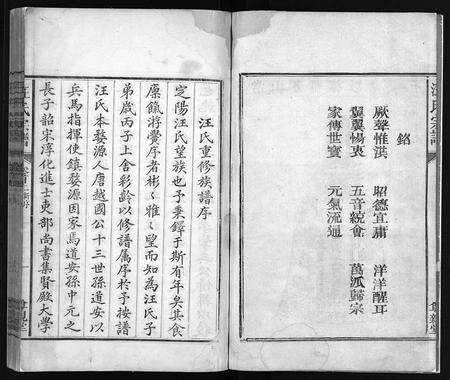 銘
厥聲惟淇 昭德宜肅 洋洋醒耳
翼翼惕衷 五音統會 萬派歸宗
家傳世寶 元氣流通
汪氏重修族譜序
定陽汪氏望族也予秉鐸于斯有年矣其食
廩餼將黌序者彬彬雅雅望而知為汪氏子
弟歲丙子上舍彩齡以修譜属序於予按譜
汪氏本婺源人唐越國公十三世孫道安以
兵馬指揮使鎮婺源因家焉道安孫中元之
長子韶宋淳化進士吏部尚書集賢殿大學